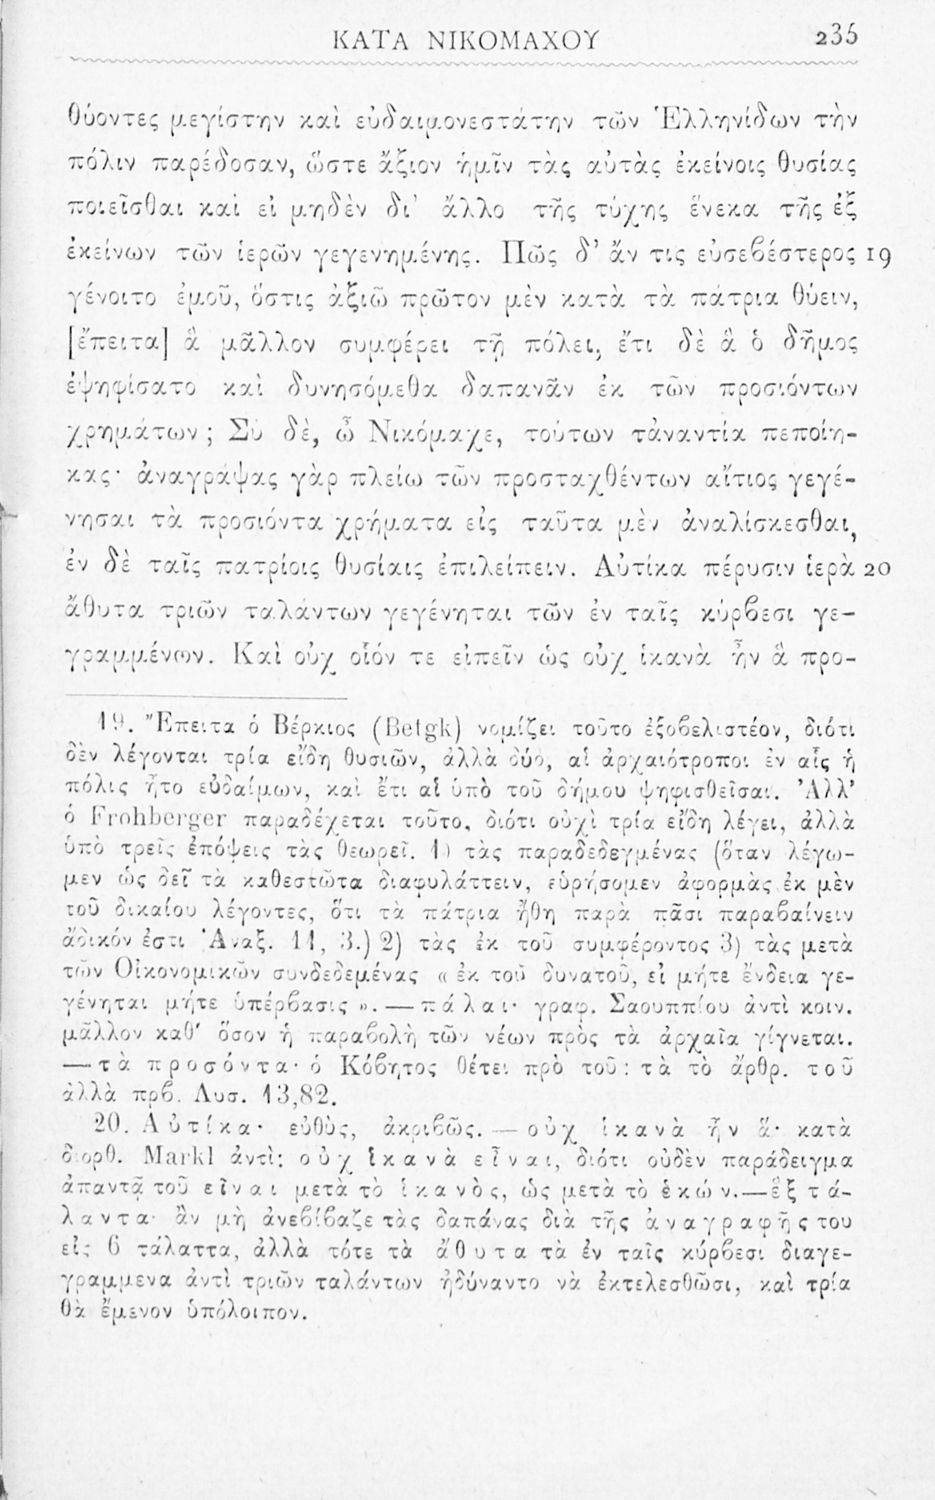 ΚΑΤΑ ΝΙΚΟΜΑΧΟΥ 235
θύοντες μεγίστην καὶ εὐδαιμονεστάτην τῶν Ἑλληνίδων τὴν
πόλιν παρέδοσαν, ὥστε ἄξιον ἡμῖν τὰς αὐτὰς ἐκείνοις θυσίας
ποιεῖσθαι καὶ εἰ μηδὲν δι' ἄλλο τῆς τύχης ἕνεκα τῆς ἐξ
ἐκείνων τῶν ἱερῶν γεγενημένης. Πῶς δ' ἄν τις εὐσεβέστερος 19
γένοιτο ἐμοῦ, ὅστις ἀξιῶ πρῶτον μὲν κατὰ τὰ πάτρια θύειν,
[ἔπειτα] ἃ μᾶλλον συμφέρει τῇ πόλει, ἔτι δὲ ἃ ὁ δῆμος
ἐψηφίσατο καὶ δυνησόμεθα δαπανᾶν ἐκ τῶν προσιόντων
χρημάτων; Σὺ δὲ, ὦ Νικόμαχε, τούτων τἀναντία πεποίη-
κας· ἀναγράψας γὰρ πλείω τῶν προσταχθέντων αἴτιος γεγέ-
νησαι τὰ προσιόντα χρήματα εἰς ταῦτα μὲν ἀναλίσκεσθαι,
ἐν δὲ ταῖς πατρίοις θυσίαις ἐπιλείπειν. Αὐτίκα πέρυσιν ἱερὰ 20
ἄθυτα τριῶν ταλάντων γεγένηται τῶν ἐν ταῖς κύρβεσι γε-
γραμμένων. Καὶ οὐχ οἷόν τε εἰπεῖν ὡς οὐχ ἱκανὰ ἦν ἃ προ-
19. Ἔπειτα ὁ Βέρκιος (Betgk) νομίζει τοῦτο ἐξοβελιστέον, διότι
δὲν λέγονται τρία εἴδη θυσιῶν, ἀλλὰ δύο, αἱ ἀρχαιότροποι ἐν αἷς ἡ
πόλις ἦτο εὐδαίμων, καὶ ἔτι αἱ ὑπὸ τοῦ δήμου ψηφισθεῖσαι. Ἀλλ'
ὁ Frohberger παραδέχεται τοῦτο, διότι οὐχὶ τρία εἴδη λέγει, ἀλλὰ
ὑπὸ τρεῖς ἐπόψεις τὰς θεωρεῖ. 1) τὰς παραδεδεγμένας (ὅταν λέγω-
μεν ὡς δεῖ τὰ καθεστῶτα διαφυλάττειν, εὑρήσομεν ἀφορμὰς ἐκ μὲν
τοῦ δικαίου λέγοντες, ὅτι τὰ πάτρια ἤθη παρὰ πᾶσι παραβαίνειν
ἄδικόν ἐστι Ἀναξ. 11, 3.) 2) τὰς ἐκ τοῦ συμφέροντος 3) τὰς μετὰ
τῶν Οἰκονομικῶν συνδεδεμένας « ἐκ τοῦ δυνατοῦ, εἰ μήτε ἔνδεια γε-
γένηται μήτε ὑπέρβασις ». — πάλαι· γραφ. Σαουππίου ἀντὶ κοιν.
μᾶλλον καθ' ὅσον ἡ παραβολὴ τῶν νέων πρὸς τὰ ἀρχαῖα γίγνεται.
— τὰ προσόντα· ὁ Κόβητος θέτει πρὸ τοῦ: τὰ τὸ ἄρθρ. τοῦ
ἀλλὰ πρβ. Λυσ. 13,82.
20. Αὐτίκα· εὐθὺς, ἀκριβῶς. — οὐχ ἱκανὰ ἦν ἅ· κατὰ
διορθ. Markl ἀντὶ: οὐχ ἱκανὰ εἶναι, διότι οὐδὲν παράδειγμα
ἀπαντᾷ τοῦ εἶναι μετὰ τὸ ἱκανὸς, ὡς μετὰ τὸ ἑκών.—ἓξ τά-
λαντα· ἂν μὴ ἀνεβίβαζε τὰς δαπάνας διὰ τῆς ἀναγραφῆς του
εἰς 6 τάλαττα, ἀλλὰ τότε τὰ ἄθυτα τὰ ἐν ταῖς κύρβεσι διαγε-
γραμμενα ἀντὶ τριῶν ταλάντων ἠδύναντο νὰ ἐκτελεσθῶσι, καὶ τρία
θὰ ἔμενον ὑπόλοιπον.